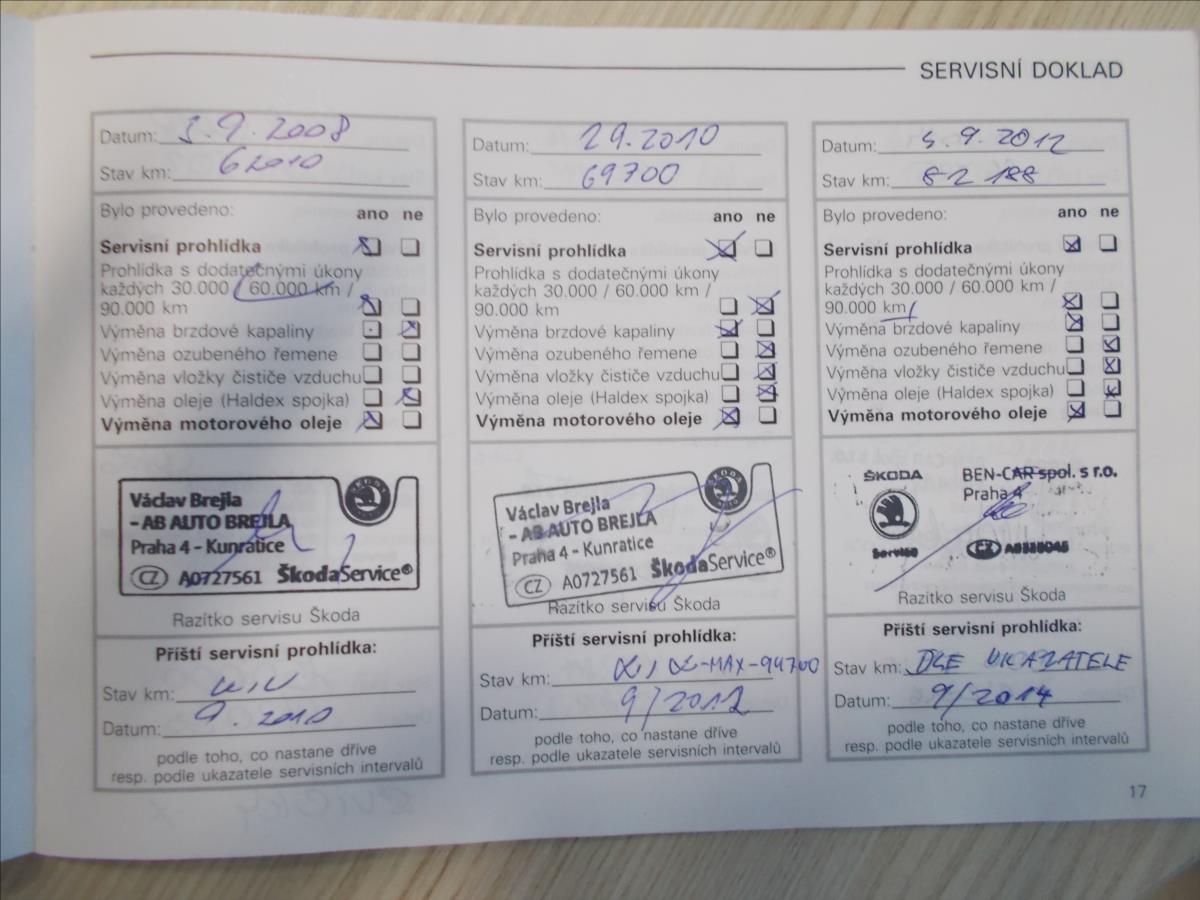 SERVISNÍ DOKLAD
Datum: 3.9.2008
Stav km: 62010
Bylo provedeno: ano ne
Servisní prohlídka
Prohlídka s dodatečnými úkony
každých 30.000 / 60.000 km /
90.000 km
Výměna brzdové kapaliny
Výměna ozubeného řemene
Výměna vložky čističe vzduchu
Výměna oleje (Haldex spojka)
Výměna motorového oleje
Václav Brejla
- AB AUTO BREJLA
Praha 4 - Kunratice
CZ A0727561 ŠkodaService®
Razítko servisu Škoda
Příští servisní prohlídka:
Stav km:
Datum: 9. 2010
podle toho, co nastane dříve
resp. podle ukazatele servisních intervalů
Datum: 29.2010
Stav km: 69700
Bylo provedeno: ano ne
Servisní prohlídka
Prohlídka s dodatečnými úkony
každých 30.000 / 60.000 km /
90.000 km
Výměna brzdové kapaliny
Výměna ozubeného řemene
Výměna vložky čističe vzduchu
Výměna oleje (Haldex spojka)
Výměna motorového oleje
ŠKODA
Václav Brejla
- AB AUTO BREJLA
Praha 4 - Kunratice
CZ A0727561 ŠkodaService®
Razítko servisu Škoda
Příští servisní prohlídka:
Stav km: MAX-94700
Datum: 9/2012
podle toho, co nastane dříve
resp. podle ukazatele servisních intervalů
Datum: 9.2012
Stav km: 82 188
Bylo provedeno: ano ne
Servisní prohlídka
Prohlídka s dodatečnými úkony
každých 30.000 / 60.000 km /
90.000 km
Výměna brzdové kapaliny
Výměna ozubeného řemene
Výměna vložky čističe vzduchu
Výměna oleje (Haldex spojka)
Výměna motorového oleje
ŠKODA BEN-CAR spol. s r.o.
Praha 4
Servise CZ
Razítko servisu Škoda
Příští servisní prohlídka:
Stav km: DLE UKAZATELE
Datum: 9/2014
podle toho, co nastane dříve
resp. podle ukazatele servisních intervalů
17